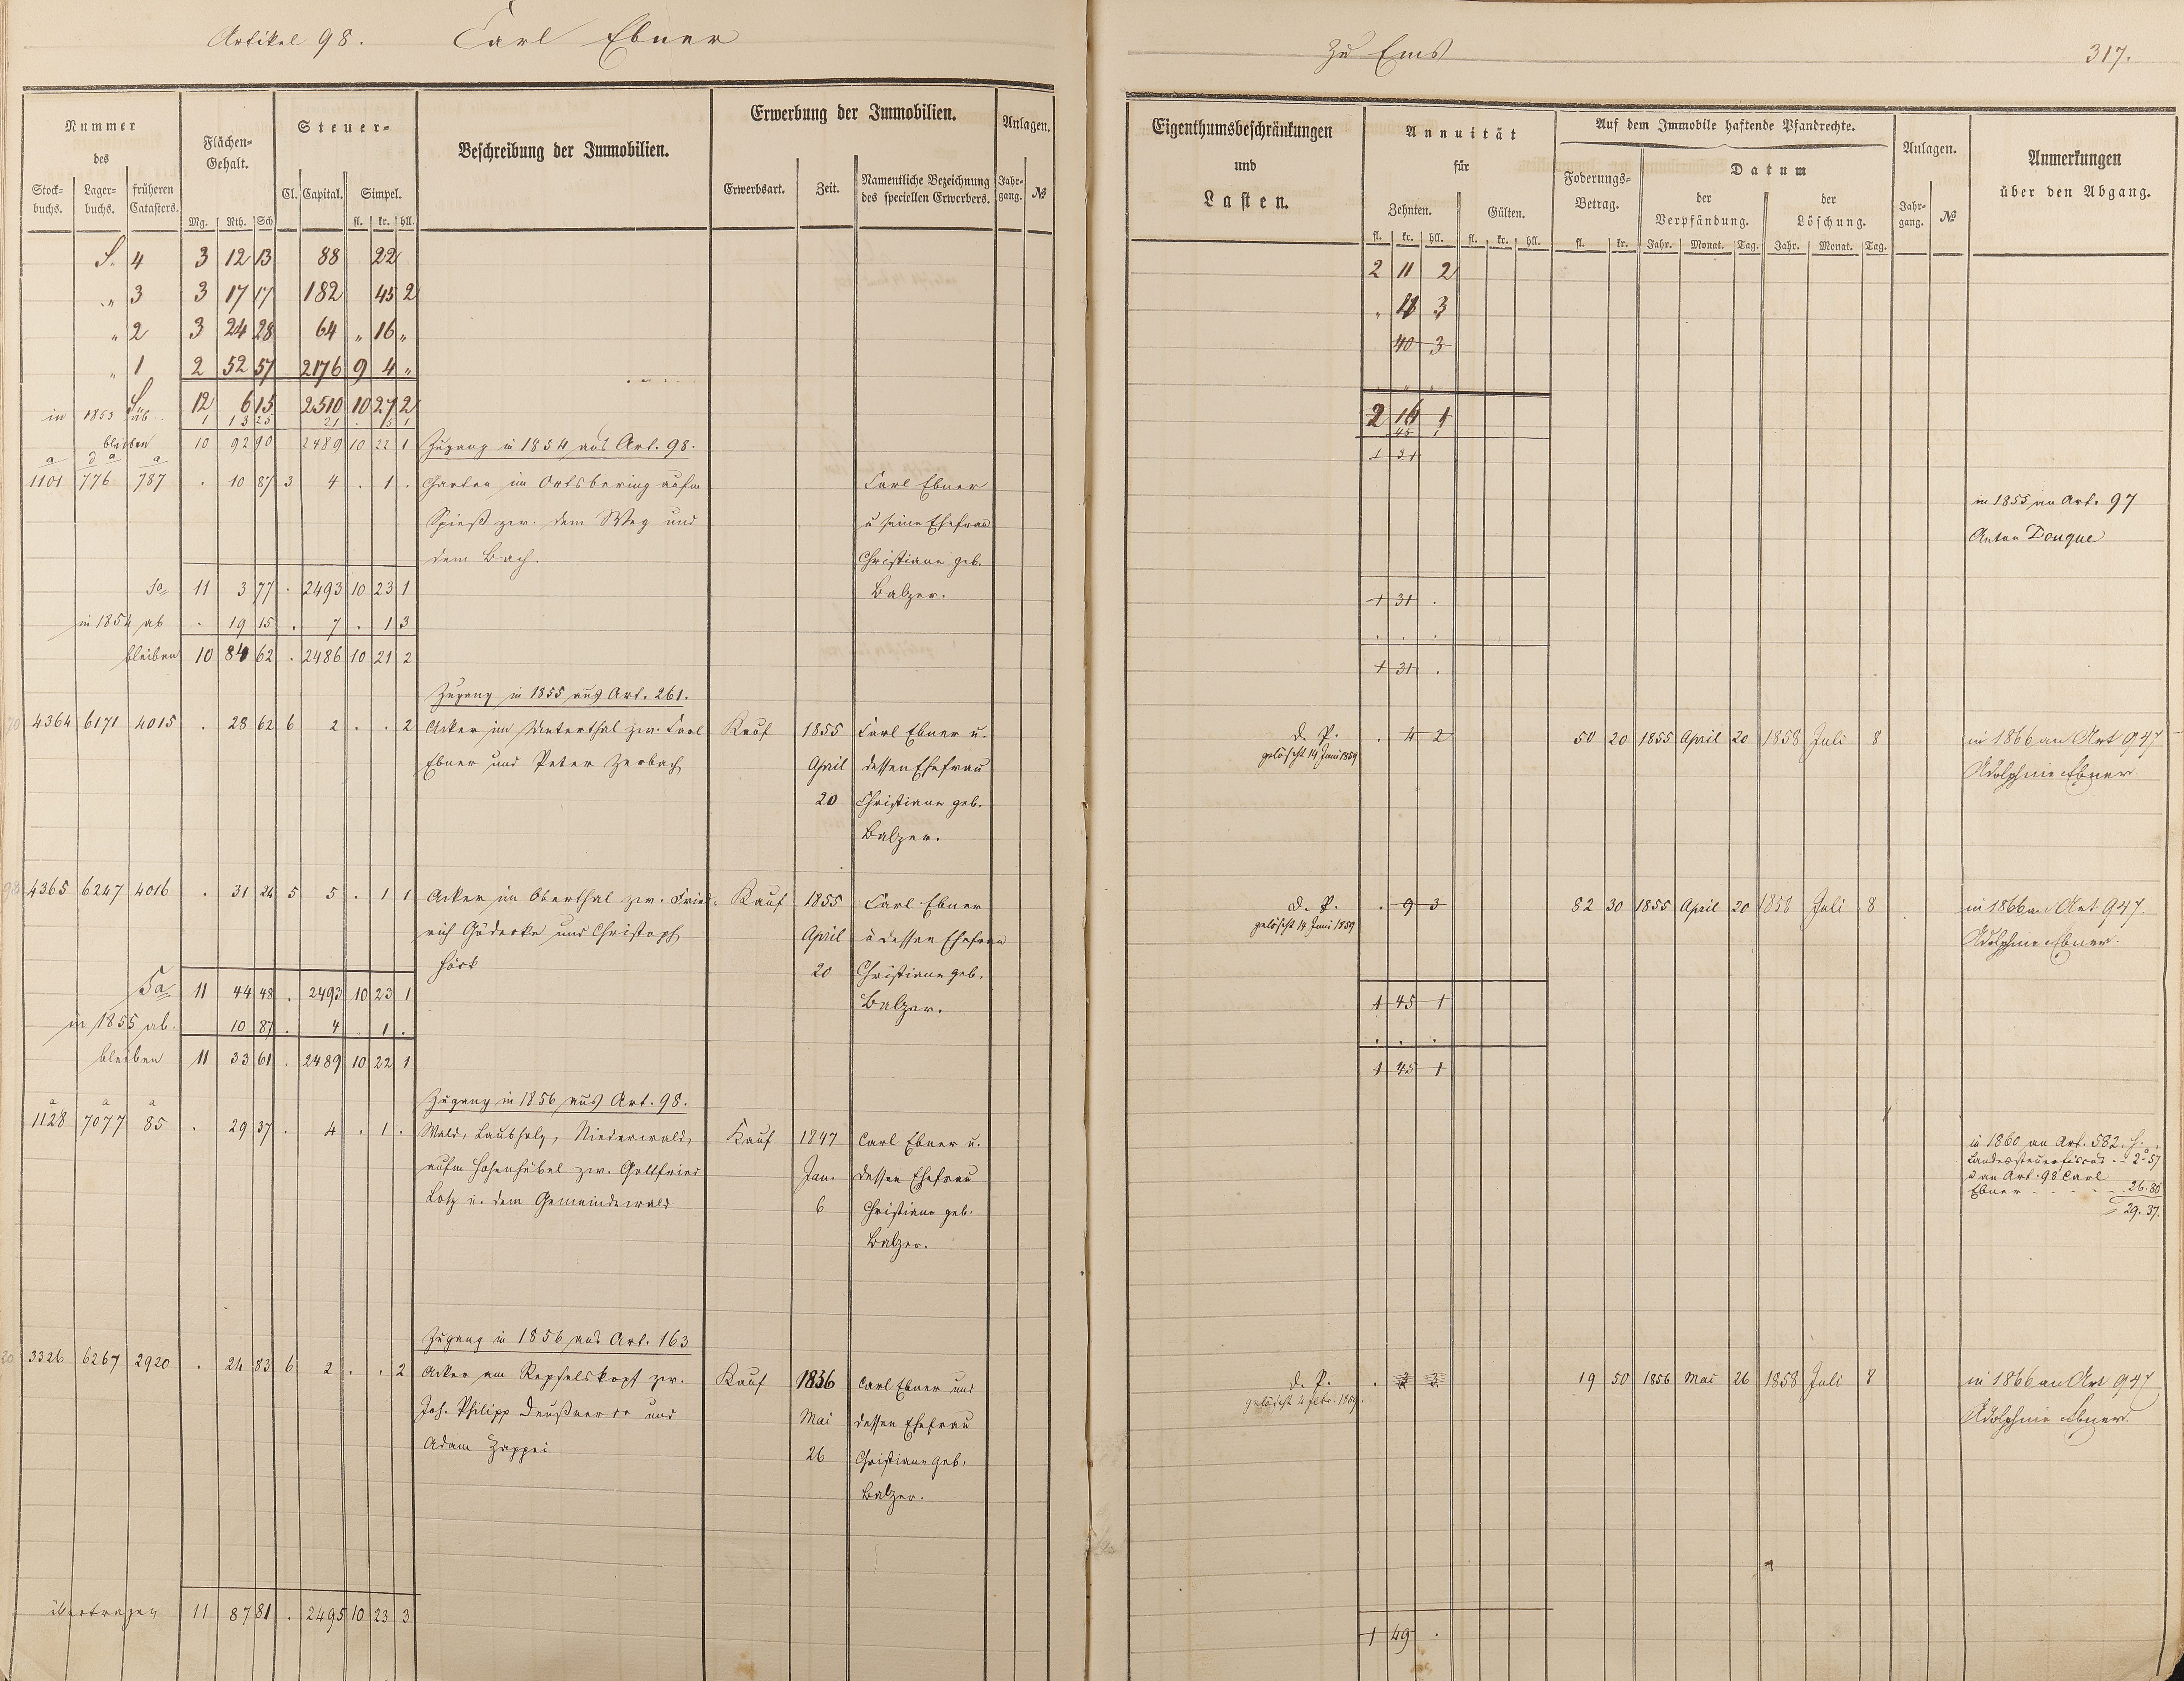 Artikel 98. Carl Ebner
Nummer des
Stock-buchs. Lager-buchs. früheren Catasters.
Flächen-Gehalt.
Mg. Rth. Sch
Steuer-
Cl. Capital. Simpel.
fl. kr. hll.
Beschreibung der Immobilien.
Erwerbung der Immobilien.
Erwerbsart. Zeit. Namentliche Bezeichnung des speciellen Erwerbers.
Anlagen.
Jahr-gang. №
S. 4 3 12 13 88 22
„ 3 3 17 17 182 45 2
„ 2 3 24 28 64 „ 16 „
„ 1 2 52 57 2176 9 4 „
S 12 6 15 2510 10 27 2
in 1853 ab 1 13 25 21 . 5 1
bleiben 10 92 90 2489 10 22 1 Zugang in 1854 aus Art. 98.
a a a
1101 776 787 . 10 87 3 4 . 1 . Garten im Ortsbering aufm Carl Ebner
Spieß zw. dem Weg und u seine Ehefrau
dem Bach. Christiane geb.
Sa 11 3 77 . 2493 10 23 1 Balzer.
in 1854 ab . 19 15 . 7 . 1 3
bleiben 10 84 62 . 2486 10 21 2
Zugang in 1855 aus Art. 261.
4364 6171 4015 . 28 62 6 2 . . 2 Acker im Unterthal zw. Carl Kauf 1855 Carl Ebner u.
Ebner und Peter Zerbach April dessen Ehefrau
20 Christiane geb.
Balzer.
4365 6247 4016 . 31 24 5 5 . 1 1 Acker im Oberthal zw. Fried- Kauf 1855 Carl Ebner
rich Gödecke und Christoph April u dessen Ehefrau
Höck 20 Christiane geb.
Sa 11 44 48 . 2493 10 23 1 Balzer.
in 1855 ab. 10 87 . 4 . 1 .
bleiben 11 33 61 . 2489 10 22 1
Zugang in 1856 aus Art. 98.
a a a
1128 7077 85 . 29 37 . 4 . 1 . Wald, Laubholz, Niederwald, Kauf 1847 Carl Ebner u.
aufm Hohenhübel zw. Gottfried Jan. dessen Ehefrau
Lotz u. dem Gemeindewald 6 Christiane geb.
Balzer.
Zugang in 1856 aus Art. 163
3326 6267 2920 . 24 83 6 2 . . 2 Acker am Kauf 1856 Carl Ebner und
Joh. Philipp und Mai dessen Ehefrau
Adam Zappei 26 Christiane geb.
Balzer.
übertragen 11 87 81 . 2495 10 23 3
Zu Ems 317.
Eigenthumsbeschränkungen und Lasten.
Annuität für
Zehnten. Gülten.
fl. kr. hll. fl. kr. hll.
Auf dem Immobile haftende Pfandrechte.
Foderungs-Betrag.
fl. kr.
Datum
der Verpfändung. der Löschung.
Jahr. Monat. Tag. Jahr. Monat. Tag.
Anlagen.
Jahr-gang. №
Anmerkungen über den Abgang.
2 11 2
. 11 3
40 3
2 16 1
45 1
1 31
in 1855 an Art. 97
Anton Douque
1 31 .
. . .
1 31 .
d. P. . 4 2 50 20 1855 April 20 1858 Juli 8 in 1866 an Art 947
gelöscht 14 Juni 1859 Adolphine Ebner.
d. P. . 9 3 82 30 1855 April 20 1858 Juli 8 in 1866 an Art 947.
gelöscht 14 Juni 1859 Adolphine Ebner.
1 45 1
. . .
1 45 1
in 1860 an Art. 582. H.
Landessteuerfiscus . 2 57
u an Art. 98 Carl
Ebner . . . 26.80
29. 37.
d. P. . 3 3 19 50 1856 Mai 26 1858 Juli 8 in 1866 an Art 947
gelöscht 4 Febr. 1859. Adolphine Ebner.
1 49 .